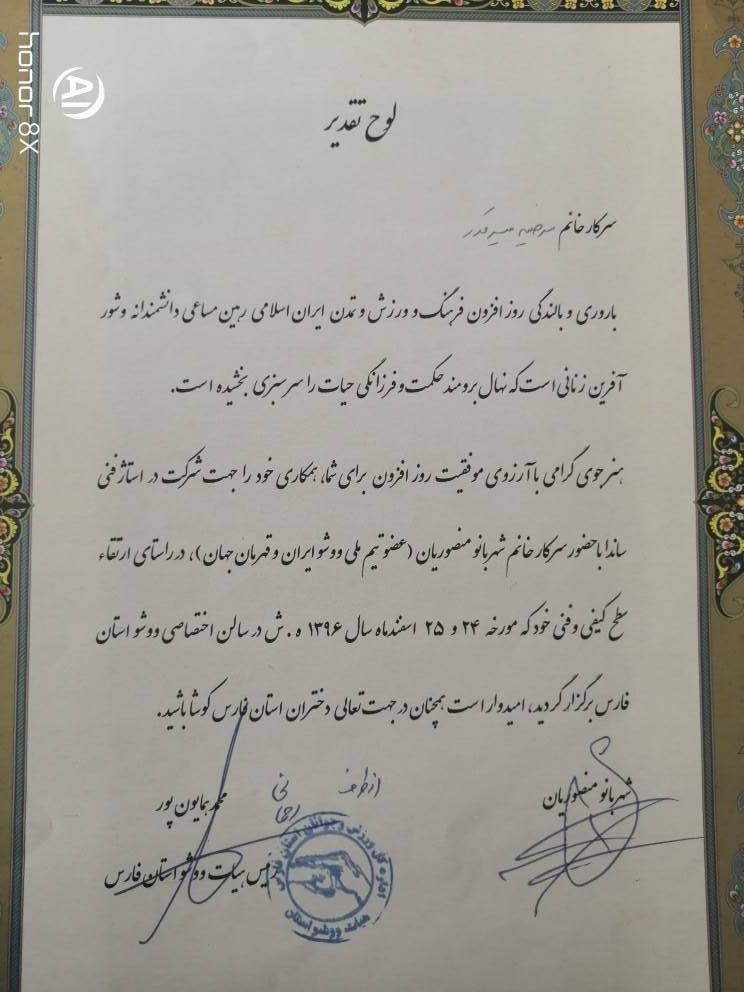 لوح تقدیر
سرکار خانم مرضیه
باروری و بالندگی روز افزون فرهنگ و ورزش و تمدن ایران اسلامی رهین مساعی دانشمندانه و شور
آفرین زنانی است که نهال برومند حکمت و فرزانگی حیات را سرسبزی بخشیده است.
هنرجوی گرامی با آرزوی موفقیت روز افزون برای شما، همکاری خود را جهت شرکت در استاژ فنی
ساندا با حضور سرکار خانم شهربانو منصوریان (عضو تیم ملی ووشو ایران و قهرمان جهان)، در راستای ارتقاء
سطح کیفی و فنی خود که مورخه ۲۴ و ۲۵ اسفندماه سال ۱۳۹۶ ه.ش در سالن اختصاصی ووشو استان
فارس برگزار گردید، امیدوار است همچنان در جهت تعالی دختران استان فارس کوشا باشید.
شهربانو منصوریان
از طرف
محمد همایون پور
رئیس هیات ووشو استان فارس
اداره کل ورزش و جوانان استان فارس
هیات ووشو استان
honor 8X
AI